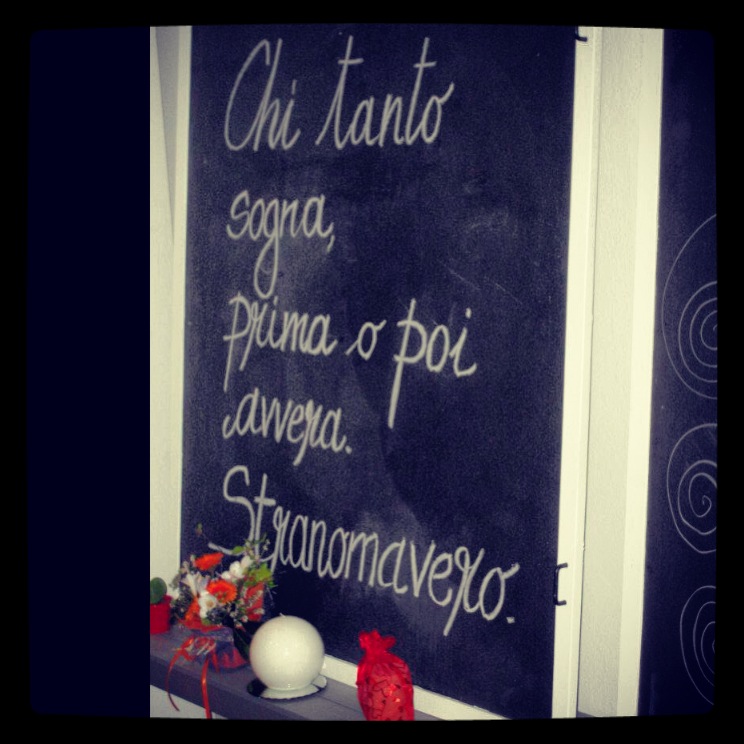 Chi tanto
sogna,
prima o poi
avvera.
Stranomavero.